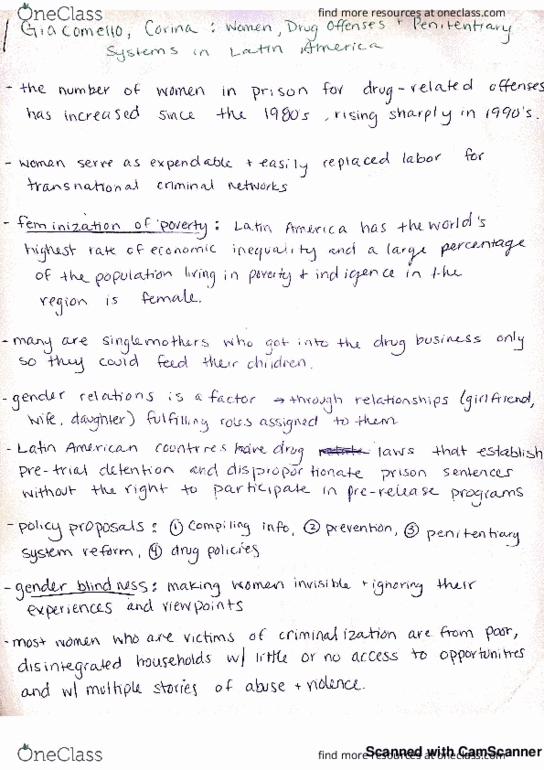 OneClass
find more resources at oneclass.com
Giacomello, Corina : Women, Drug Offenses + Penitentiary
Systems in Latin America
- the number of women in prison for drug-related offenses
has increased since the 1980's, rising sharply in 1990's.
- women serve as expendable + easily replaced labor for
transnational criminal networks
- feminization of poverty: Latin America has the world's
highest rate of economic inequality and a large percentage
of the population living in poverty + indigence in the
region is female.
- many are single mothers who got into the drug business only
so they could feed their children.
- gender relations is a factor → through relationships (girlfriend,
wife, daughter) fulfilling roles assigned to them
- Latin American countries have drug laws that establish
pre-trial detention and disproportionate prison sentences
without the right to participate in pre-release programs
- policy proposals: ① compiling info, ② prevention, ③ penitentiary
system reform, ④ drug policies
- gender blindness: making women invisible + ignoring their
experiences and viewpoints
- most women who are victims of criminalization are from poor,
disintegrated households w/ little or no access to opportunities
and w/ multiple stories of abuse + violence.
OneClass
find more resources at oneclass.com
Scanned with CamScanner